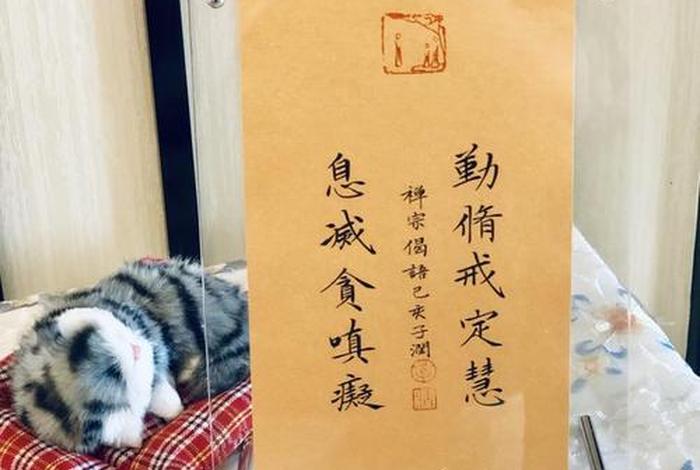 勤脩戒定慧
息滅貪嗔癡
禅宗偈語己亥子潤